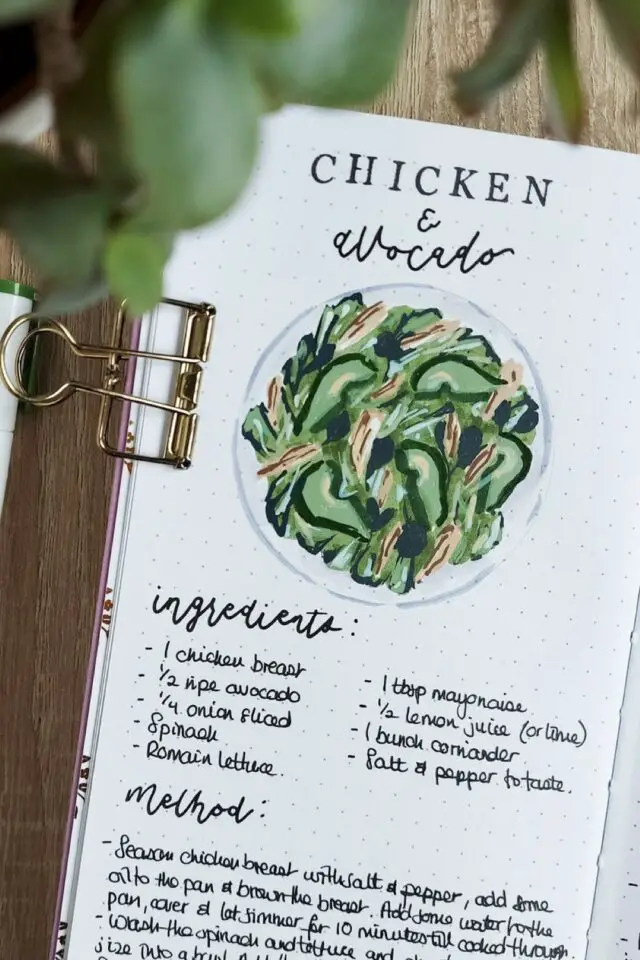 CHICKEN
&
avocado
ingredients:
- 1 chicken breast
- 1/2 ripe avocado
- 1/4 onion sliced
- Spinach
- Romain lettuce.
- 1 tbsp mayonaise
- 1/2 lemon juice (or lime)
- 1 bunch corriander
- Salt & pepper to taste.
Method:
- Season chicken breast with salt & pepper, add some
oil to the pan & brown the breast. Add some water to the
pan, cover & let simmer for 10 minutes till cooked through.
- Wash the spinach and lettuce and
size into a bowl